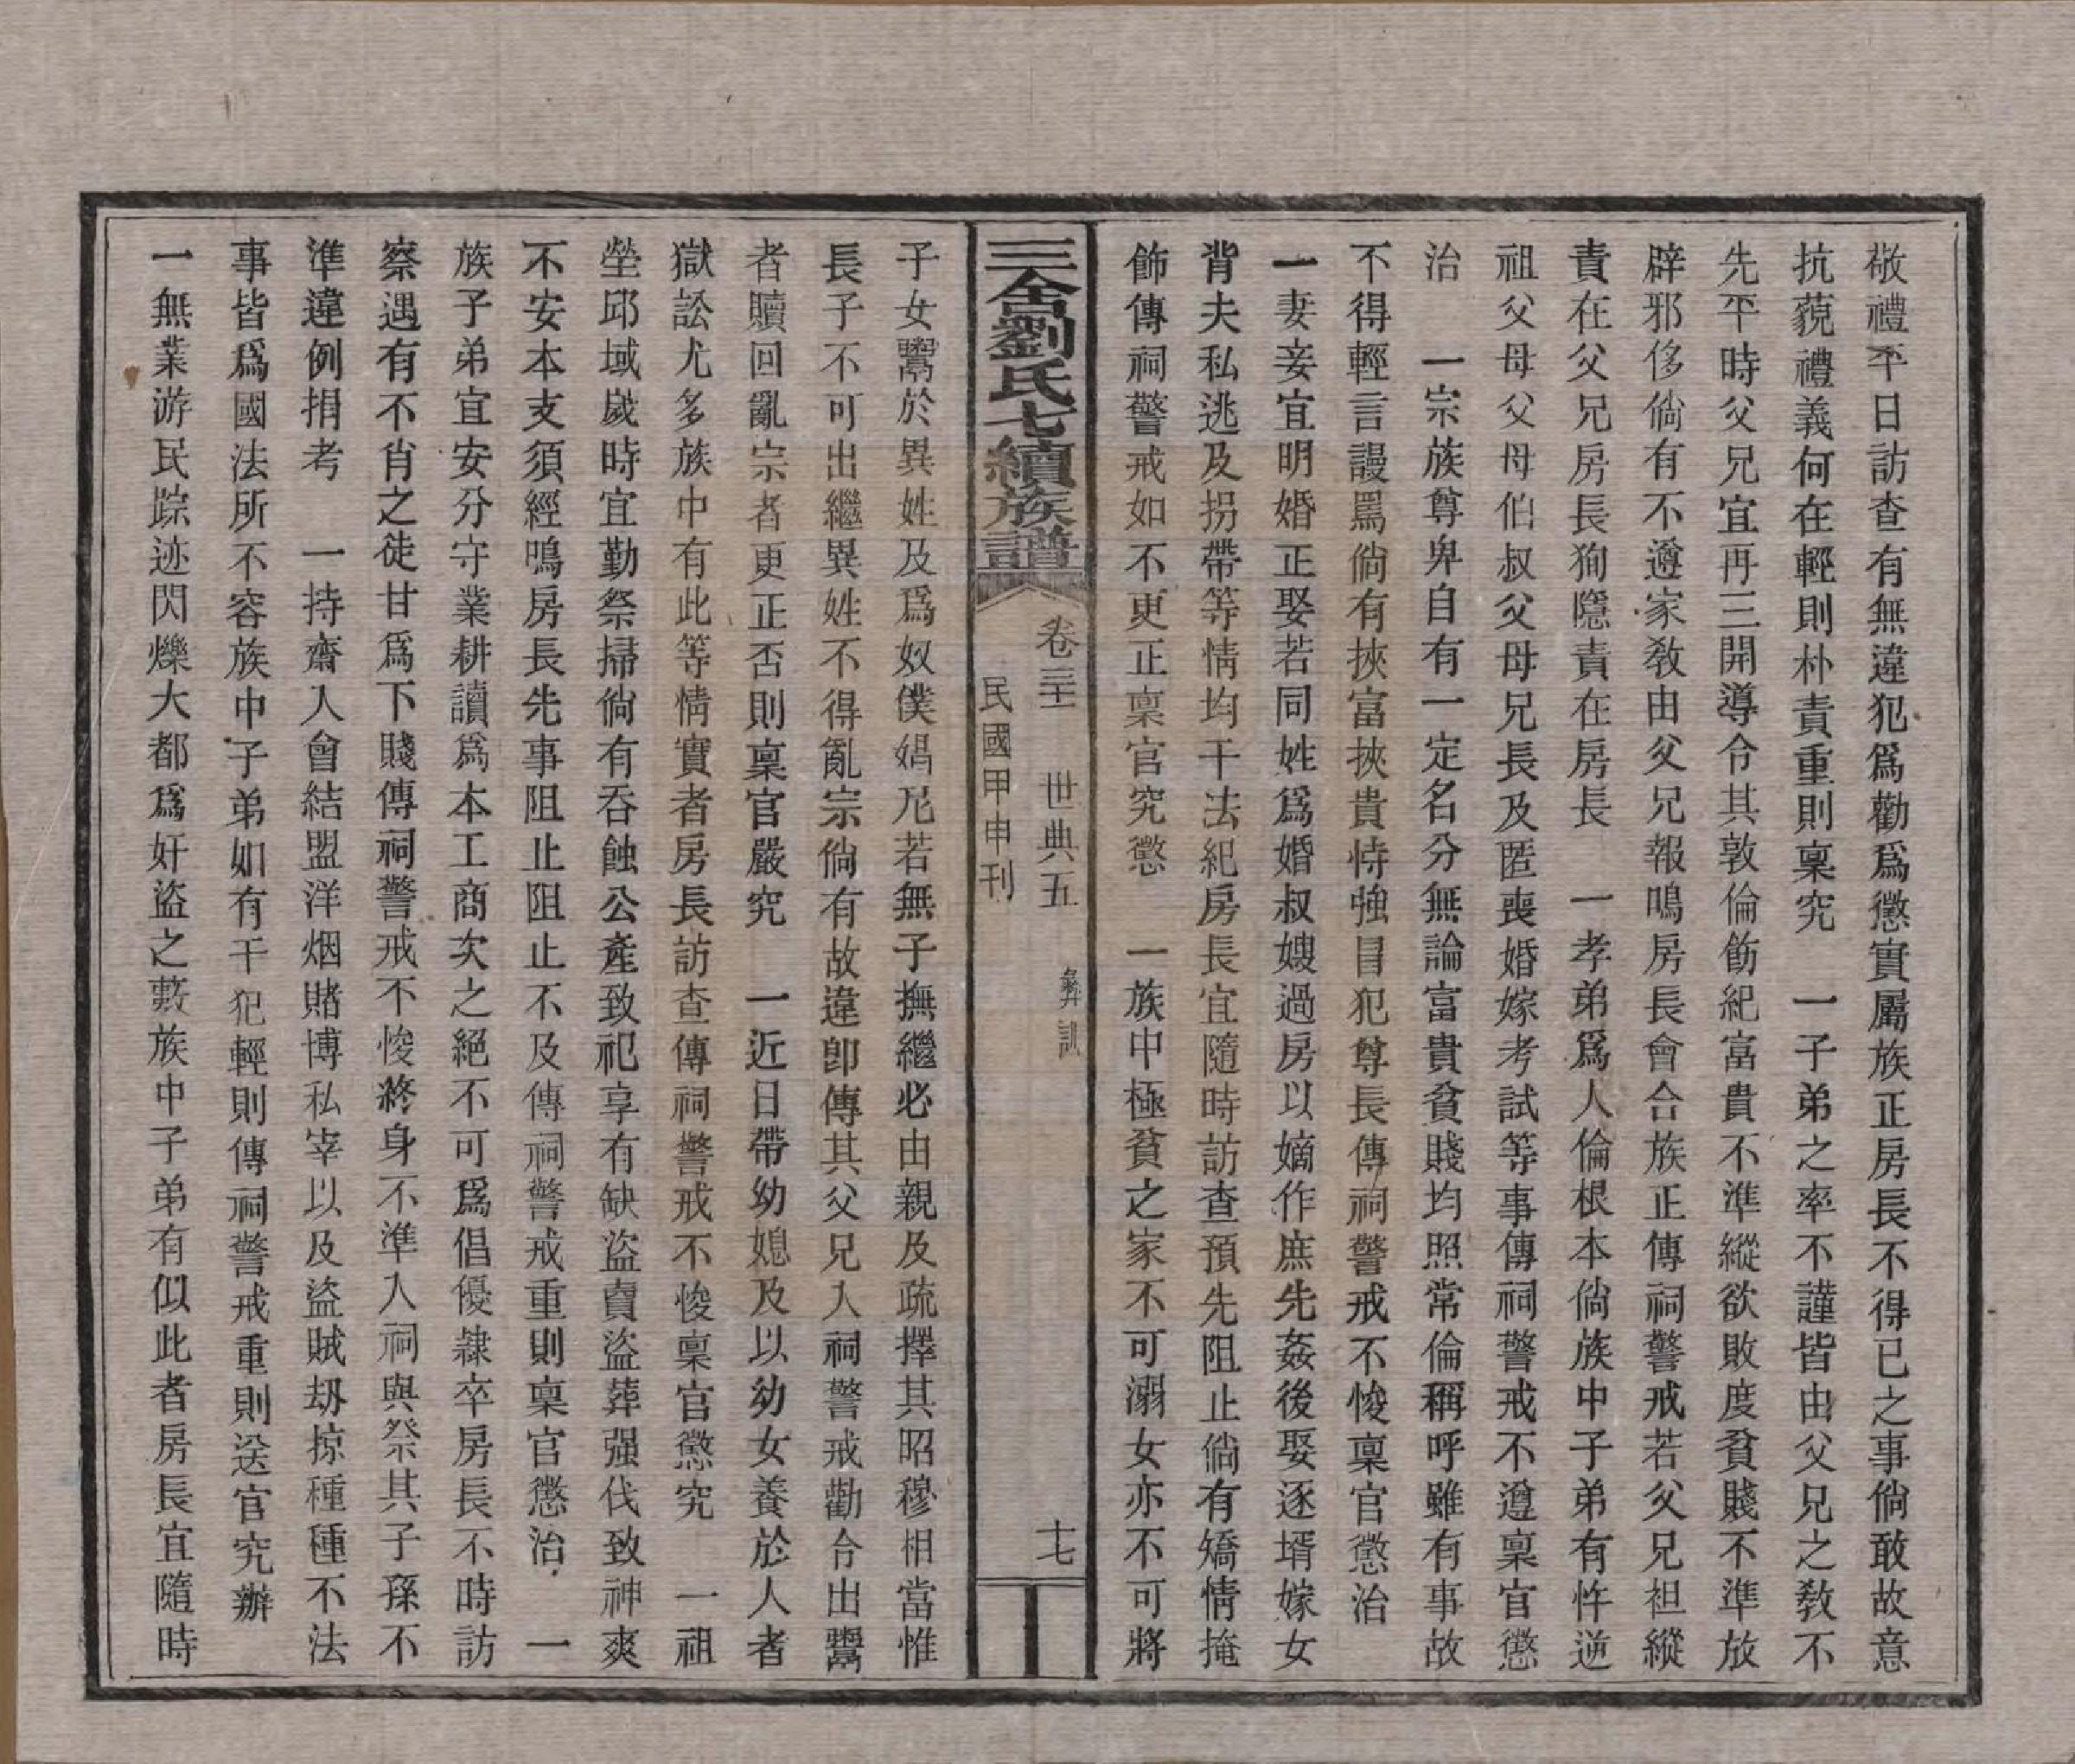 敬禮平日訪查有無違犯爲勸爲懲實屬族正房長不得已之事倘敢故意
抗藐禮義何在輕則朴責重則稟究　一子弟之率不謹皆由父兄之敎不
先平時父兄宜再三開導令其敦倫飭紀富貴不準縱欲敗度貧賤不準放
辟邪侈倘有不遵家敎由父兄報鳴房長會合族正傳祠警戒若父兄袒縱
責在父兄房長狥隱責在房長　一孝弟爲人倫根本倘族中子弟有忤逆
祖父母父母伯叔父母兄長及匿喪婚嫁考試等事傳祠警戒不遵稟官懲
治　一宗族尊卑自有一定名分無論富貴貧賤均照常倫稱呼雖有事故
不得輕言謾罵倘有挾富挾貴恃強目犯尊長傳祠警戒不悛稟官懲治
一妻妾宜明婚正娶若同姓爲婚叔嫂過房以嫡作庶先姦後娶逐壻嫁女
背夫私逃及拐帶等情均干法紀房長宜隨時訪查預先阻止倘有矯情掩
飾傳祠警戒如不更正稟官究懲　一族中極貧之家不可溺女亦不可將
三舍劉氏七續族譜
卷三十一　世典五　彝訓　十七
民國甲申刊
子女鬻於異姓及爲奴僕娼尼若無子撫繼必由親及疏擇其昭穆相當惟
長子不可出繼異姓不得亂宗倘有故違卽傳其父兄入祠警戒勸令出鬻
者贖回亂宗者更正否則稟官嚴究　一近日帶幼媳及以幼女養於人者
獄訟尤多族中有此等情實者房長訪查傳祠警戒不悛稟官懲究　一祖
塋邱域歲時宜勤祭掃倘有吞蝕公產致祀享有缺盜賣盜葬强伐致神爽
不安本支須經鳴房長先事阻止阻止不及傳祠警戒重則稟官懲治　一
族子弟宜安分守業耕讀爲本工商次之絕不可爲倡優隸卒房長不時訪
察遇有不肖之徒甘爲下賤傳祠警戒不悛終身不準入祠與祭其子孫不
準違例捐考　一持齋入會結盟洋烟賭博私宰以及盜賊刼掠種種不法
事皆爲國法所不容族中子弟如有干犯輕則傳祠警戒重則送官究辦
一無業游民踪迹閃爍大都爲奸盜之藪族中子弟有似此者房長宜隨時